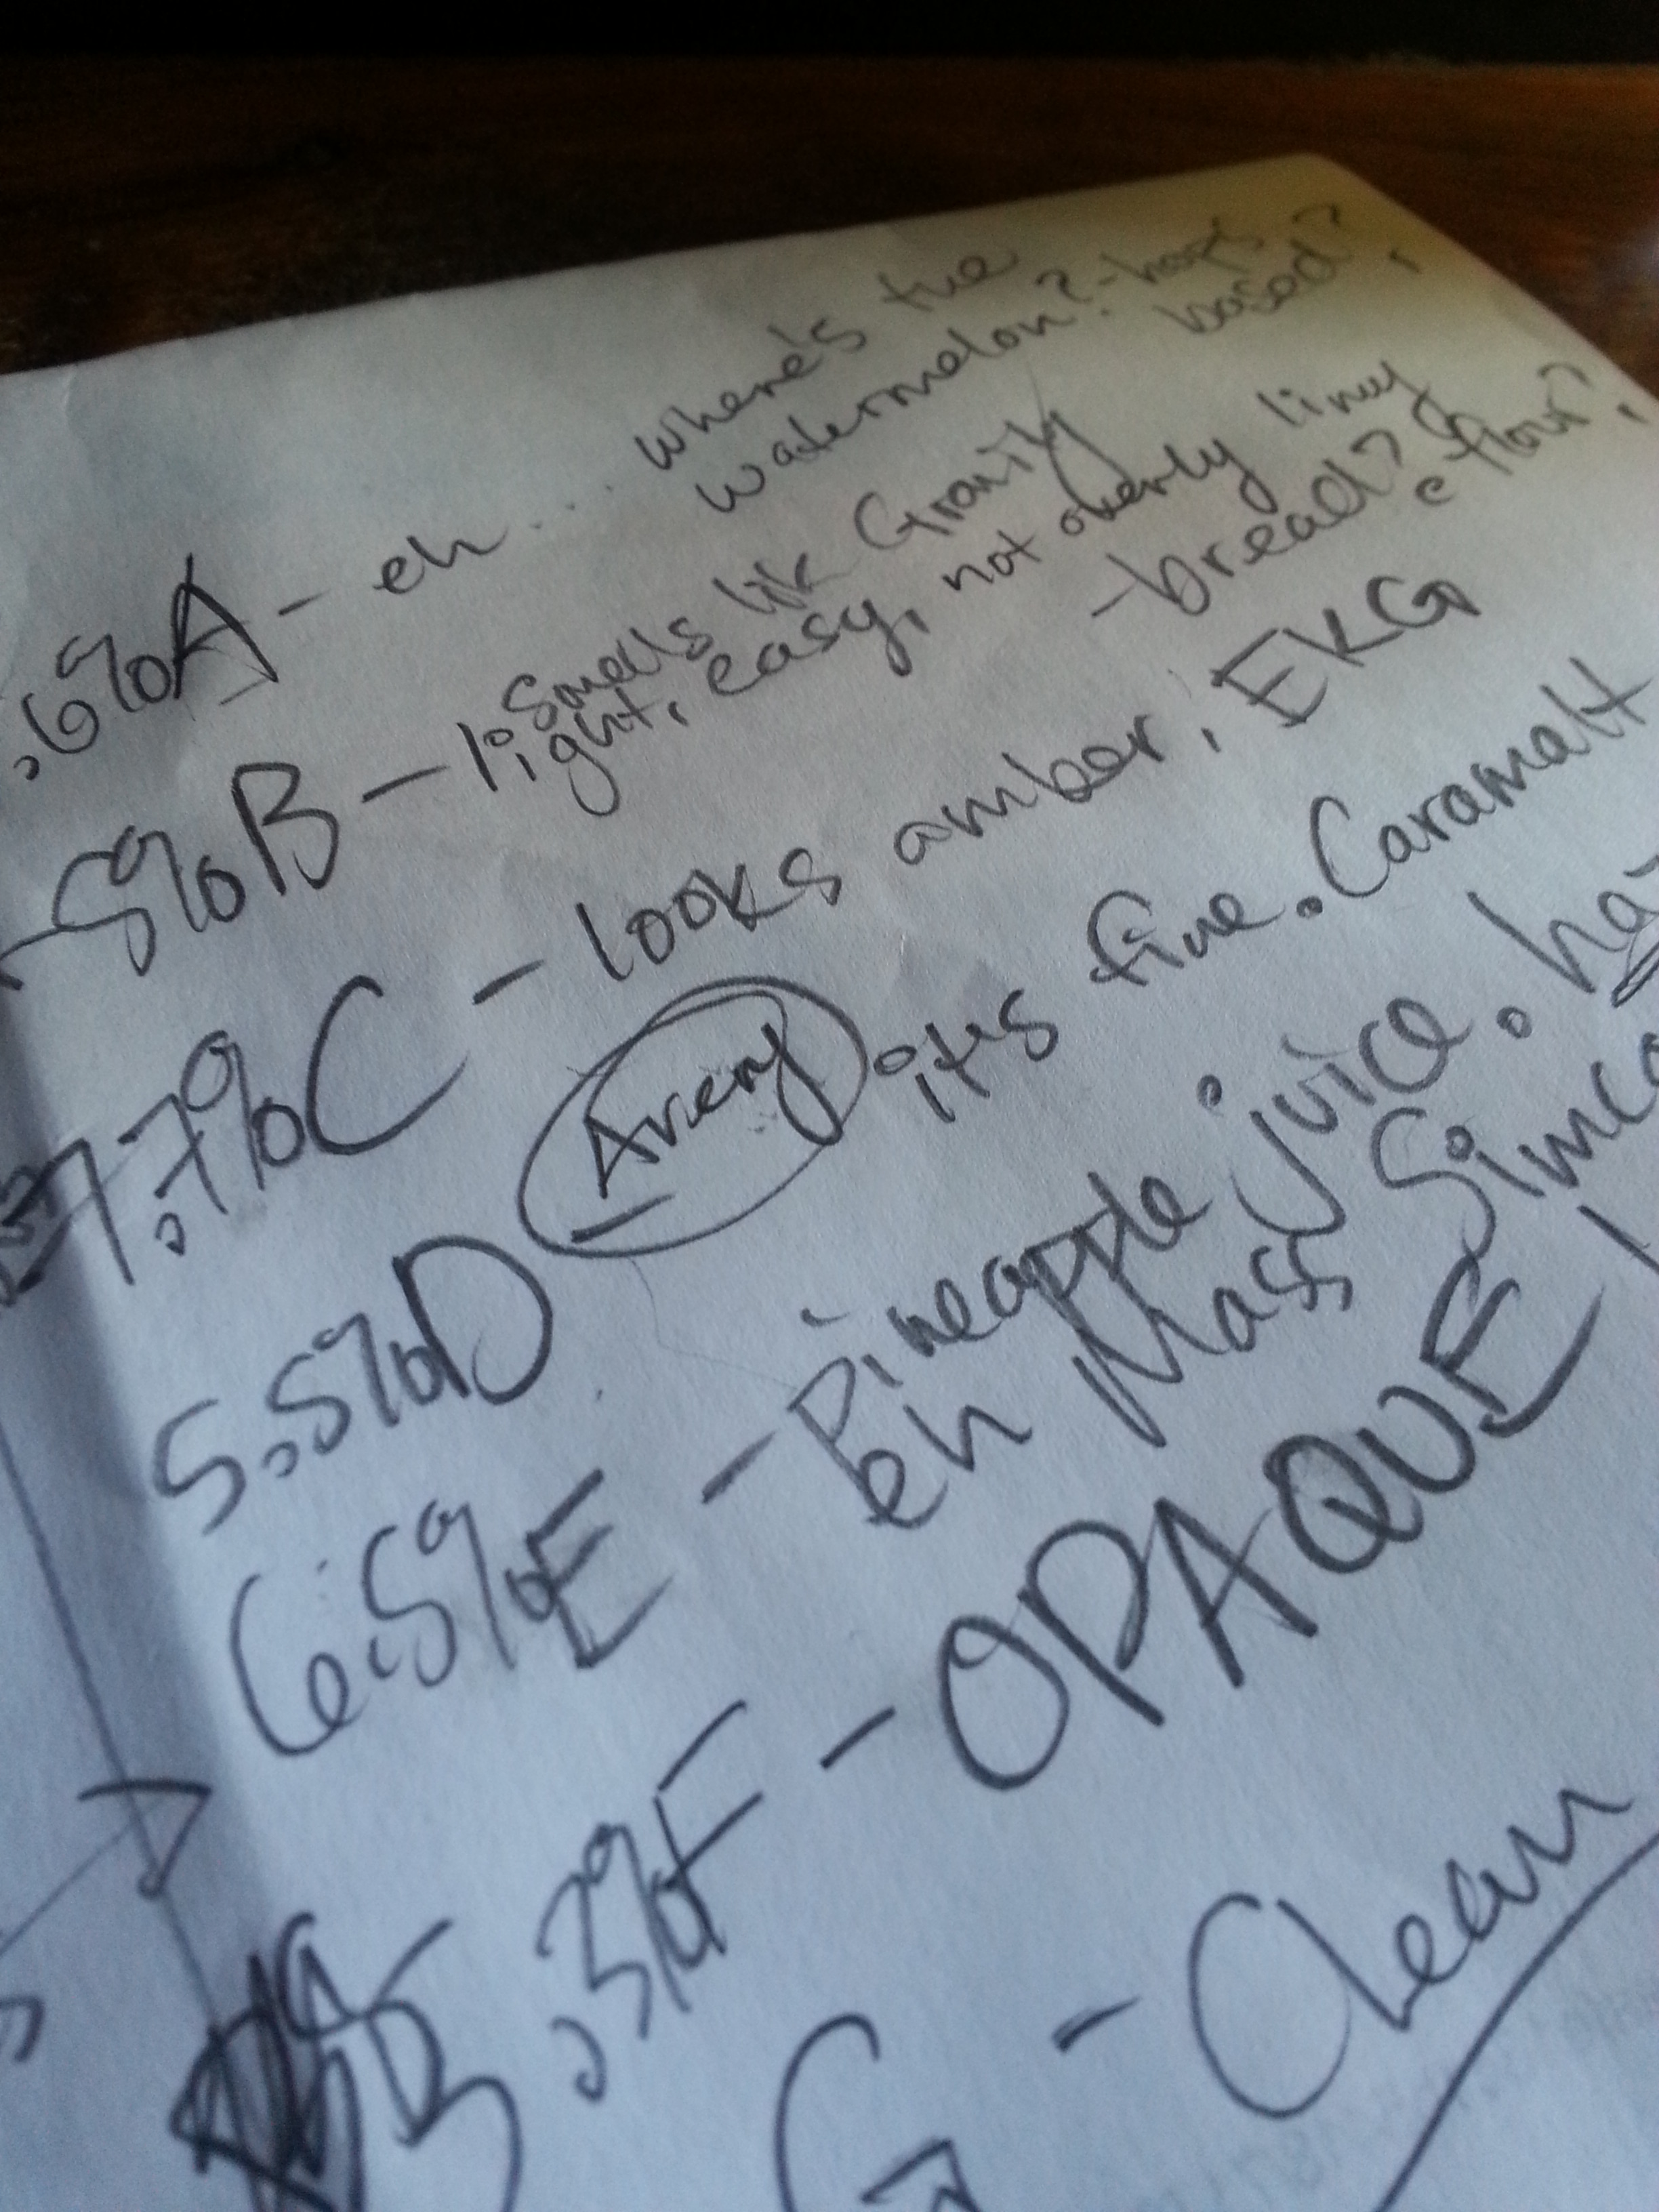 .6% A - eh... where's the
watermelon? - hops
based?
.5% B - smells lik Gravity
light, easy, not overly limy
- bread? flour?
7.7% C - looks amber, EKG
5.5% D Avery its fine. Caramalt
6.5% E - Pineapple juice. ha
eh Mass Simco
5.3% F - OPAQUE
G - Clean